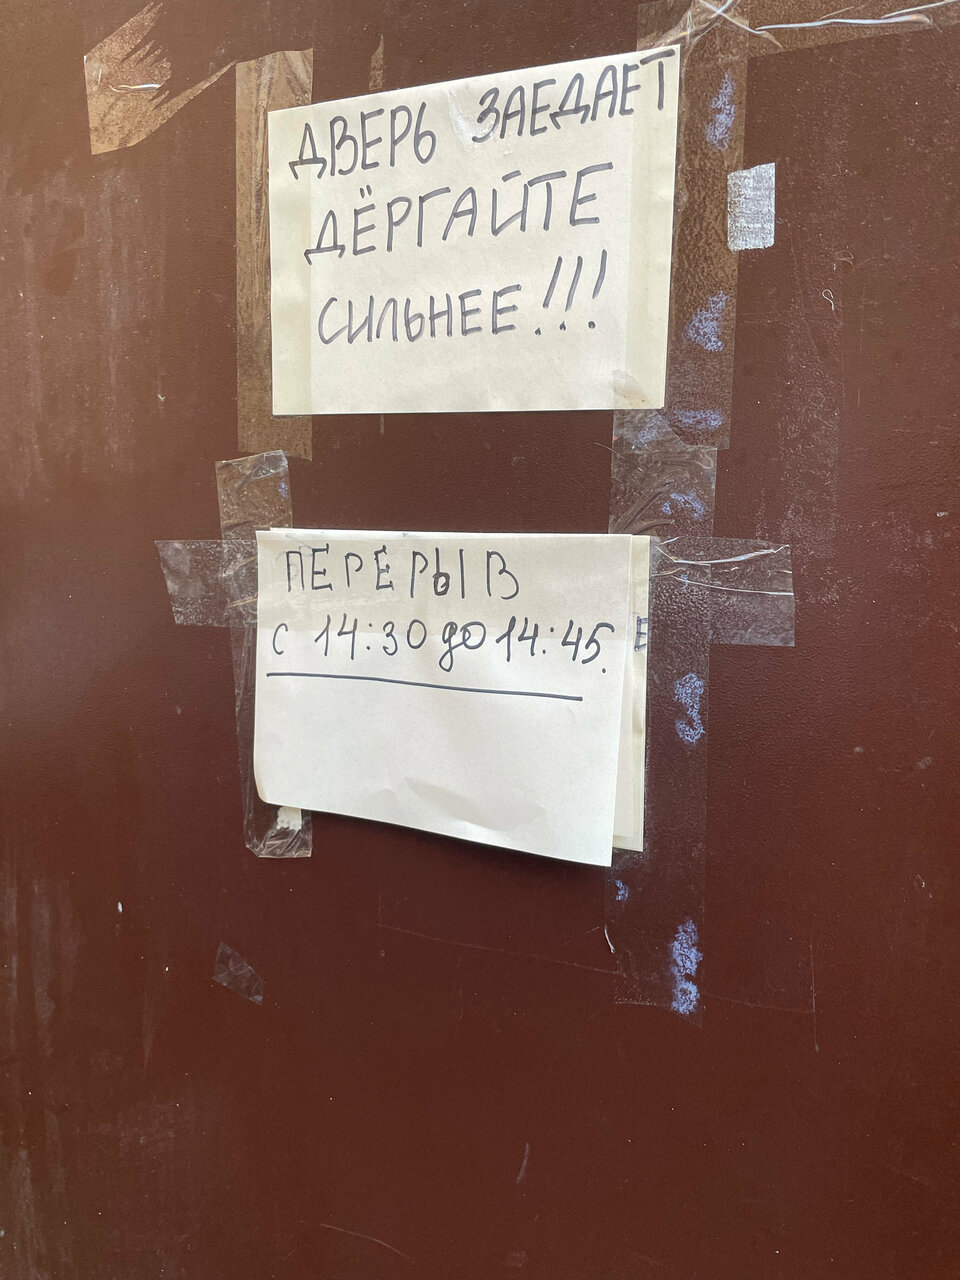 ДВЕРЬ ЗАЕДАЕТ
ДЁРГАЙТЕ
СИЛЬНЕЕ!!!
ПЕРЕРЫВ
с 14:30 до 14:45.
Е